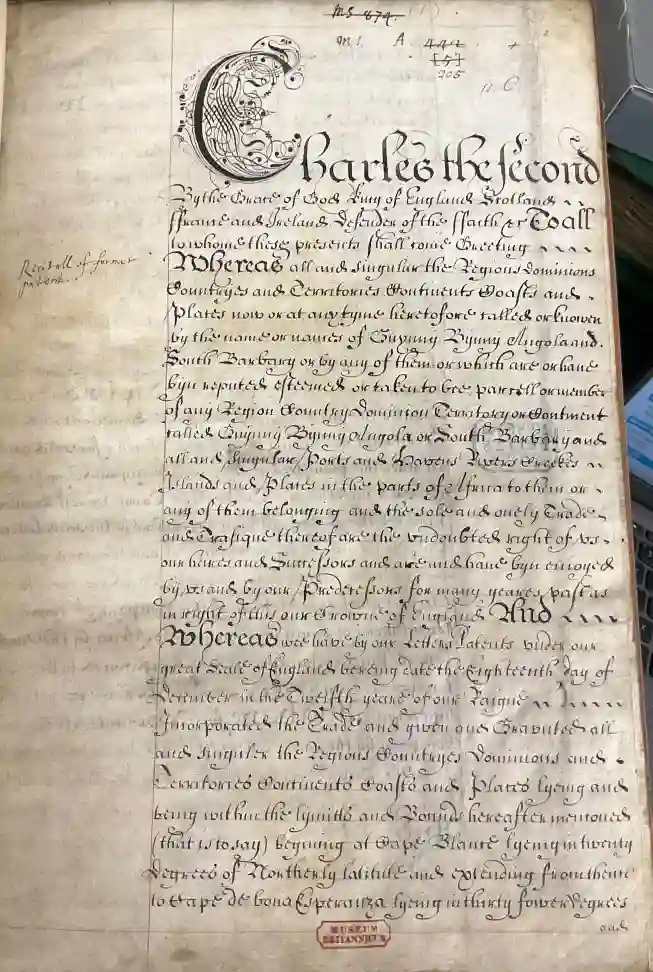 MS 874.
MS. A. 442
[57]
205
Charles the second
By the Grace of God King of England Scotland
ffrance and Ireland Defender of the ffaith &c To all
to whome these presents shall come Greeting
Whereas all and singular the Regions dominions
Recitall of former
patent
Countryes and Territories Continents Coasts and
Places now or at any tyme heretofore called or knowen
by the name or names of Guynny Bynny Angola and
South Barbary or by any of them or which are or have
byn reputed esteemed or taken to bee parcell or member
of any Region Country Dominion Territory or Continent
called Guynny Bynny Angola or South Barbary and
all and singular Ports and Havens Rivers Creekes
Islands and Places in the parts of Africa to them or
any of them belonging and the sole and onely Trade
and Trafique thereof are the undoubted right of us
our heires and Successors and are and have byn enioyed
by us and by our Predecessors for many yeares past as
in right of this our Crowne of England And
Whereas wee have by our Letters Patents under our
great Seale of England bereing date the Eighteenth day of
December in the Twelfth yeare of our Raigne
Incorporated the Trade and given and Graunted all
and singuler the Regions Countryes Dominions and
Territories Continents Coasts and Places lyeing and
being within the lymitts and Bounds hereafter mencioned
(that is to say) begining at Cape Blanc lyeing in twenty
degrees of Northerly latitude and extending from thence
to Cape de bona Esperanza lyeing in thirty fower degrees
and
MUSEUM
BRITANNICUM